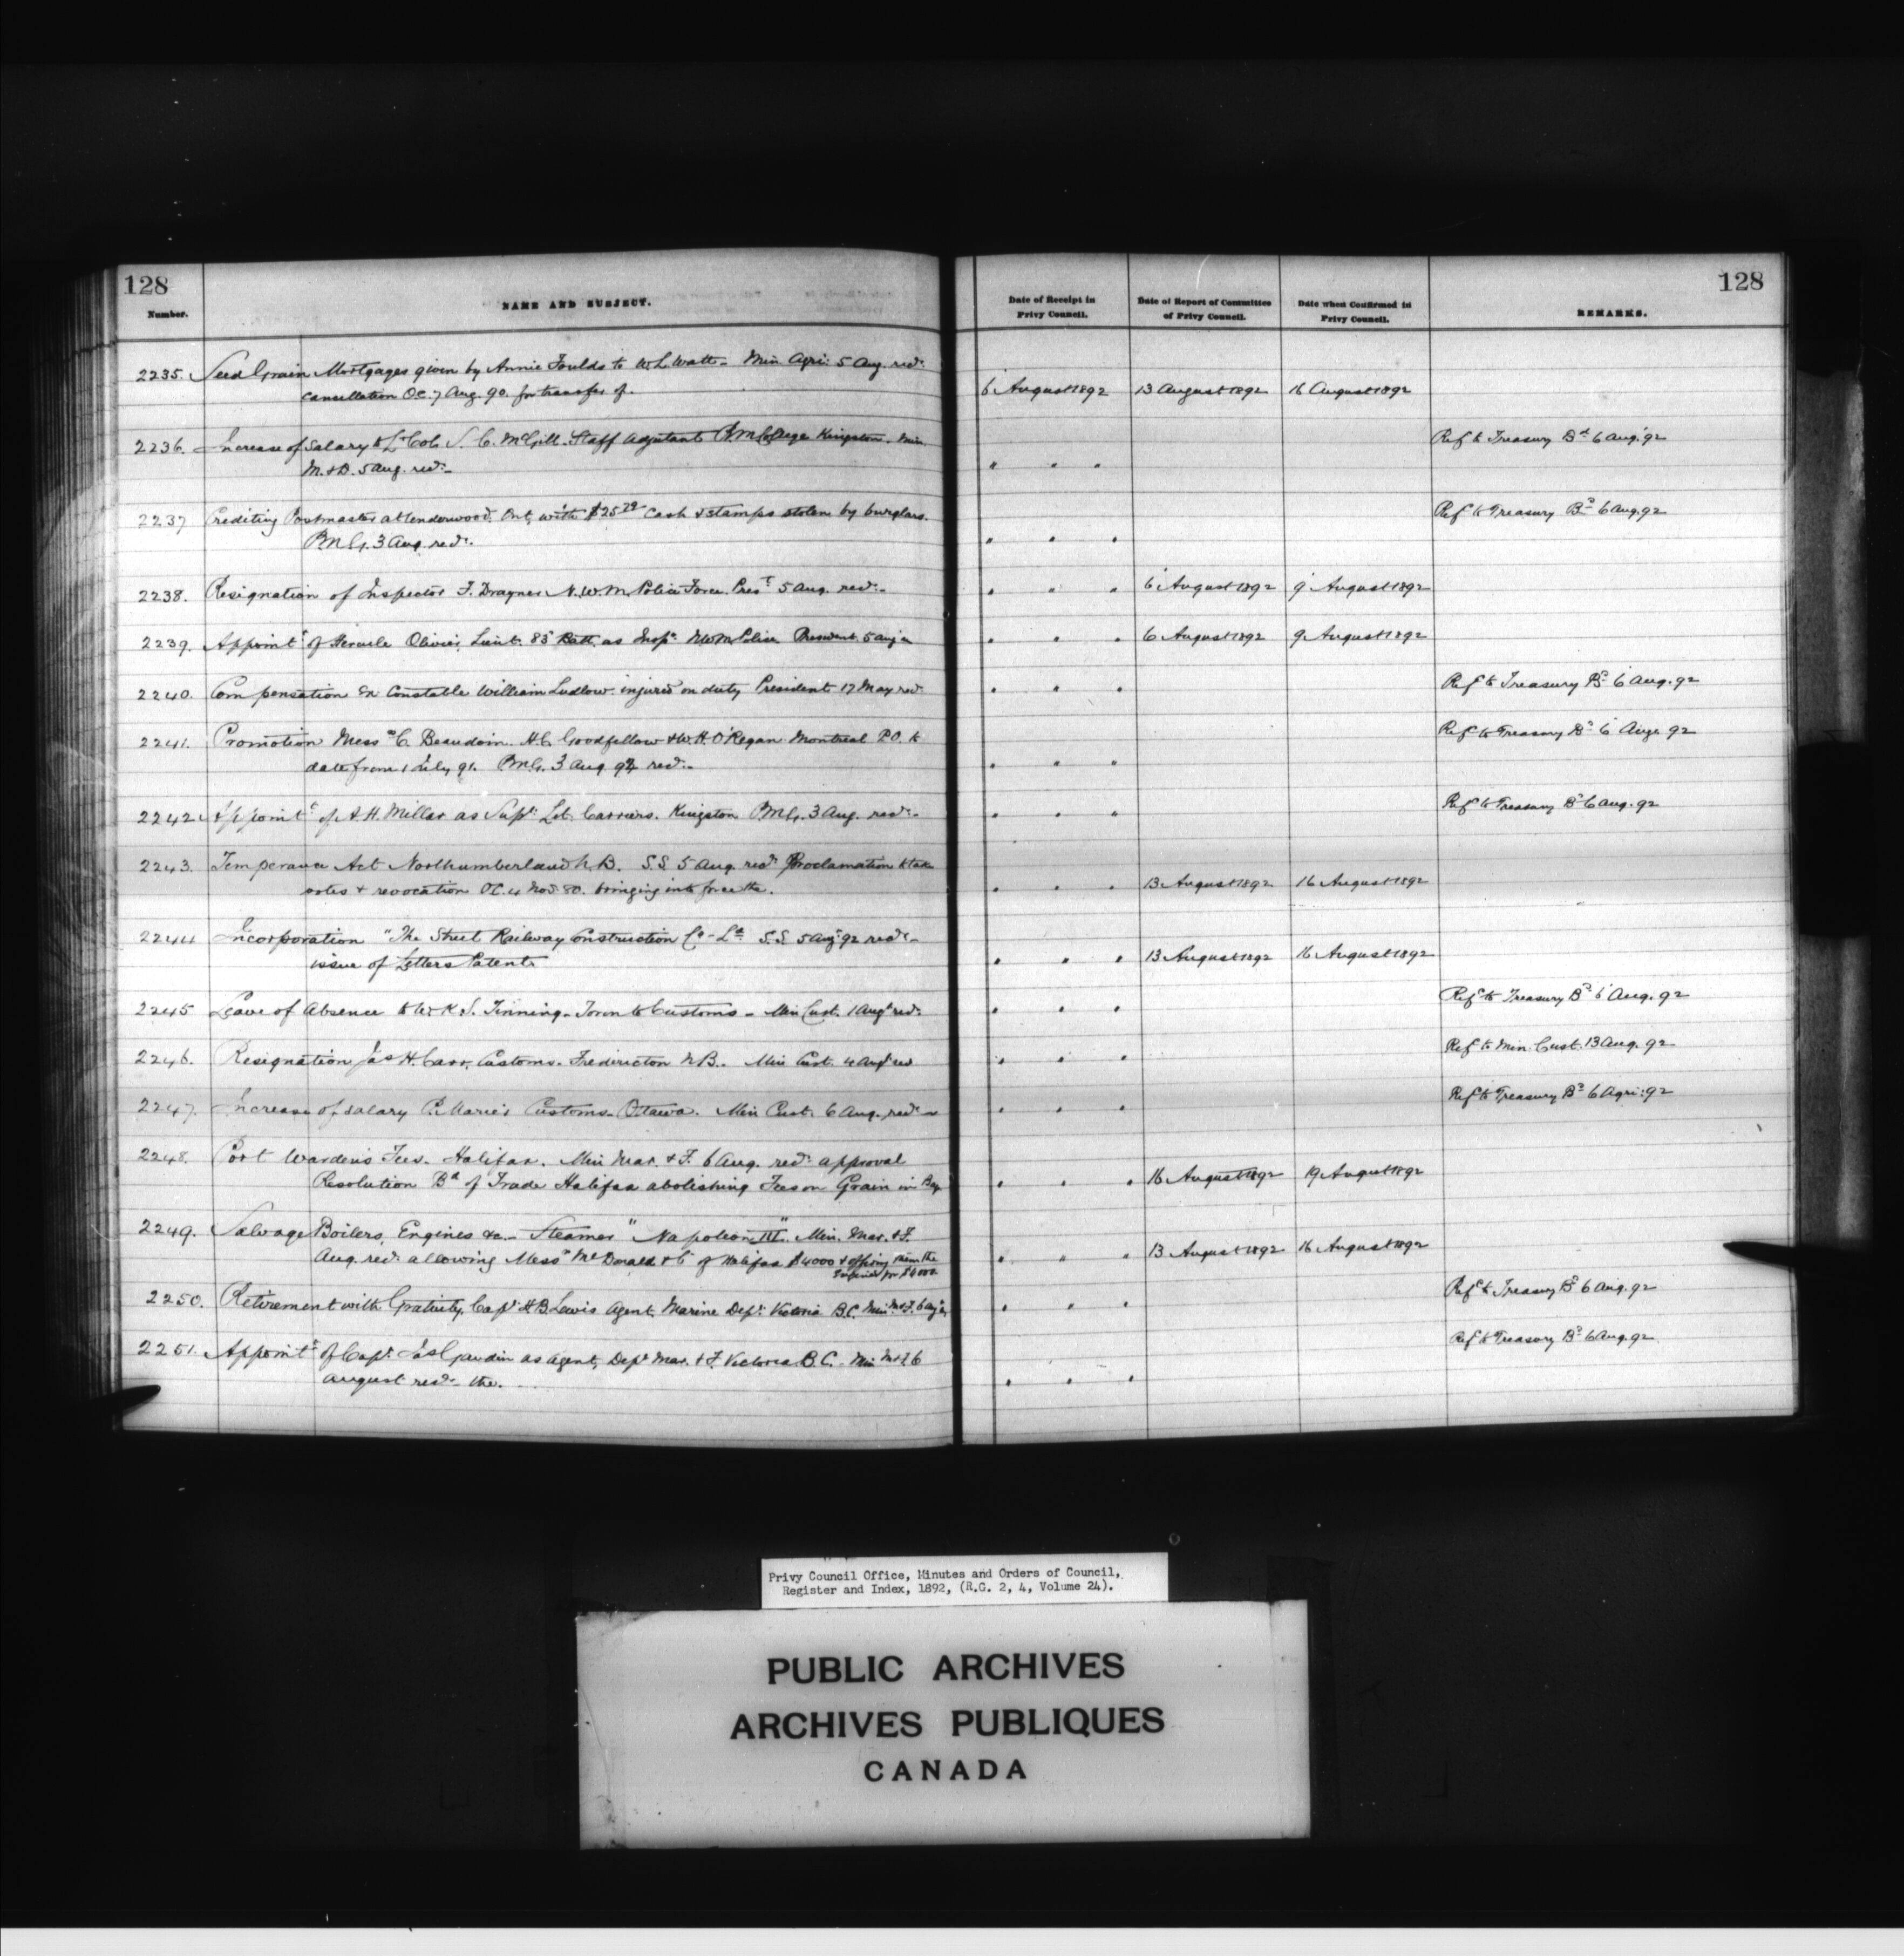 128
128
Number.
NAME AND SUBJECT.
Date of Receipt in
Privy Council.
Date of Report of Committee
of Privy Council.
Date when Confirmed in
Privy Council.
REMARKS.
2235. Seed Grain Mortgages given by Annie Foulds to W. L. Watt - Min Agri: 5 Aug. recd.
cancellation OC. 7 Aug. 90. for transfer of. 6 August 1892 13 August 1892 16 August 1892
2236. Increase of Salary to Lt Col. S. C. McGill. Staff Adjutant R. M. College Kingston. Min Refd to Treasury Bd 6 Aug. 92
M. & D. 5 Aug. recd. - " " "
2237 Crediting Postmaster at Underwood. Ont, with $25 Cash & stamps stolen by burglars. Refd to Treasury Bd 6 Aug. 92
P.M.G. 3 Aug. recd. " " "
2238. Resignation of Inspector F. Drayner N.W.M. Police Force. Prest 5 Aug. recd. - " " " 6 August 1892 9 August 1892
2239. Appointt of Hercule Olivier, Lieut. 85 Batt. as Inspr N.W.M. Police President 5 Aug " " " 6 August 1892 9 August 1892
2240. Compensation Ex Constable William Ludlow. injured on duty President 17 May recd. " " " Refd to Treasury Bd 6 Aug. 92
2241. Promotion Messrs C. Beaudoin. H. C. Goodfellow & W. H. O'Regan Montreal P.O. to Refd to Treasury Bd 6 Aug. 92
date from 1 July 91. P.M.G. 3 Aug 92 recd. - " " "
2242. Appointt of A. H. Millar as Supt. Let. Carriers. Kingston P.M.G. 3 Aug. recd. - " " " Refd to Treasury Bd 6 Aug. 92
2243. Temperance Act Northumberland N.B. S.S. 5 Aug. recd. Proclamation to take
votes & revocation OC. 4 Nov. 80. bringing into force the. " " " 13 August 1892 16 August 1892
2244 Incorporation "The Street Railway Construction Co - Ld. S.S. 5 Aug. 92 recd. -
issue of Letters Patent " " " 13 August 1892 16 August 1892
2245 Leave of Absence to W. K. S. Tinning - Toronto Customs - Min Cust. 1 Aug recd. " " " Refd to Treasury Bd 6 Aug. 92
2246. Resignation Jas H. Carr, Customs. Fredericton N.B. - Min Cust. 4 Aug recd " " " Refd to Min. Cust. 13 Aug. 92
2247. Increase of salary P. Marier Customs - Ottawa. Min Cust. 6 Aug. recd. - " " " Refd to Treasury Bd 6 Agri: 92
2248. Port Warden's Fees. Halifax. Min Mar. & F. 6 Aug. recd. approval
Resolution Bd of Trade Halifax abolishing Fees on Grain in Bag " " " 16 August 1892 19 August 1892
2249. Salvage Boilers, Engines &c. - Steamer "Napoleon III". Min. Mar. & F.
Aug. recd. allowing Messrs McDonald & Co of Halifax $4000 & offering them the " " " 13 August 1892 16 August 1892
for $6000
2250. Retirement with Gratuity, Capt. H. B. Lewis Agent, Marine Dept. Victoria B.C. Min. M & F. 6 Aug " " " Refd to Treasury Bd 6 Aug. 92
2251. Appointt of Capt. Jas Gaudin as Agent, Dept Mar. & F. Victoria B.C. - Min M & F. 6 Refd to Treasury Bd 6 Aug. 92
August recd. - the. " " "
Privy Council Office, Minutes and Orders of Council,
Register and Index, 1892, (R.G. 2, 4, Volume 24).
PUBLIC ARCHIVES
ARCHIVES PUBLIQUES
CANADA